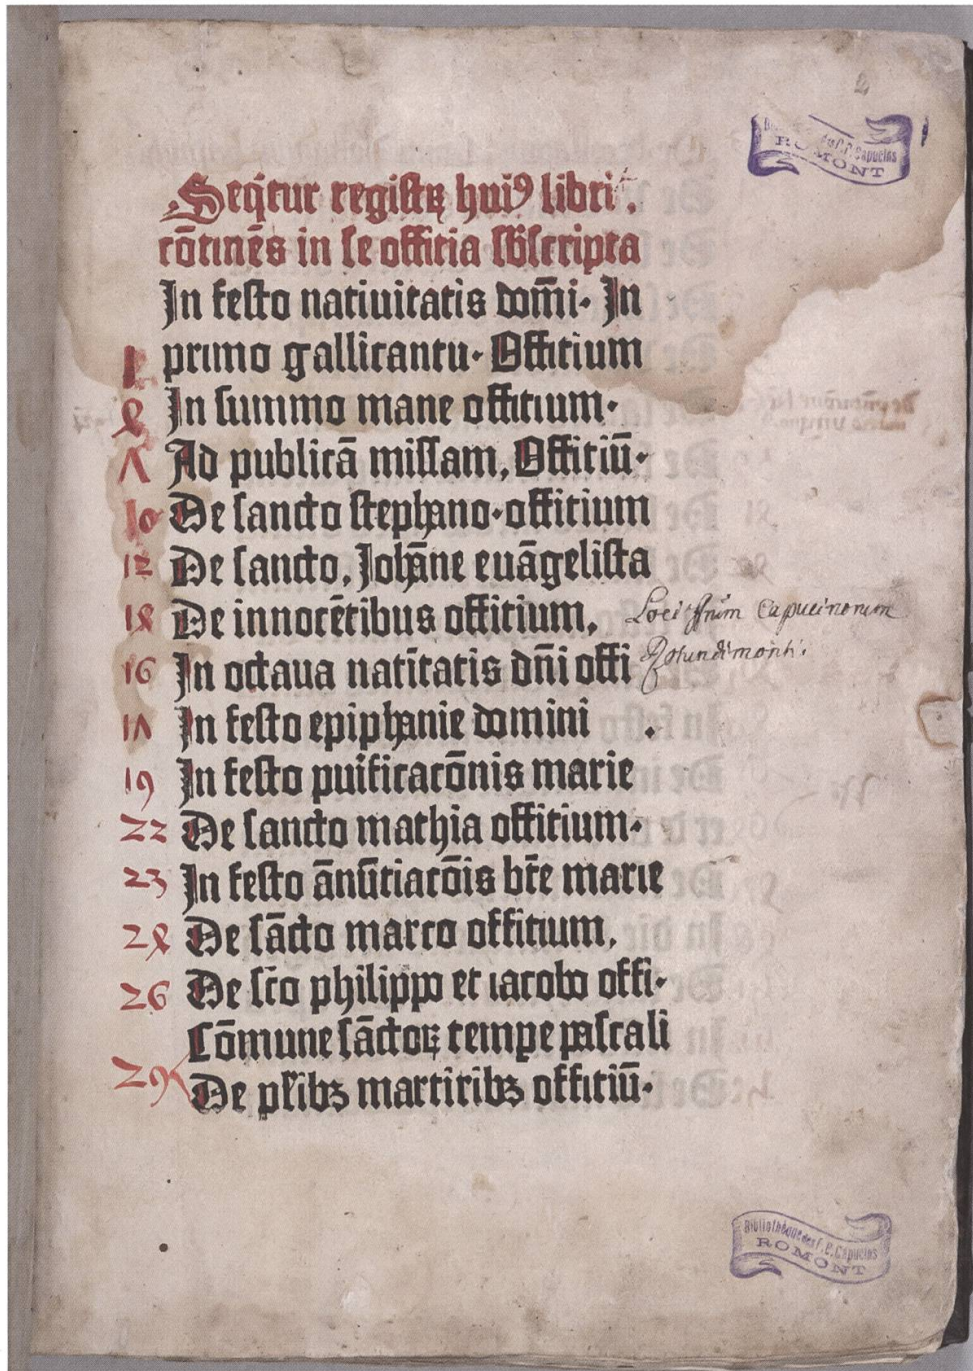 2
Bibliothèque des P.P. Capucins
ROMONT
Seq̄tur registrꝝ huiꝰ libri.
cōtinēs in se offitia sb̄scripta
In festo natiuitatis dom̄i· In
1 primo gallicantu· Offitium
4 In summo mane offitium·
7 Ad publicā missam, Offitiū·
10 De sancto stephano·offitium
12 De sancto, Joh̄āne euāgelista
14 De innocētibus offitium,
Loci ffrum Capucinorum
16 In octaua natītatis dn̄i offi
Rotundimonti.
17 In festo epiphanie domini .
19 In festo puīficacōnis marie
22 De sancto mathia offitium·
23 In festo ānūtiacōis bt̄e marie
24 De sācto marco offitium,
26 De sc̄o philippo et iacobo offi·
Cōmune sāctoꝝ temꝑe pascali
29 De pl̄ibꝫ martiribꝫ offitiū·
Bibliothèque des P.P. Capucins
ROMONT